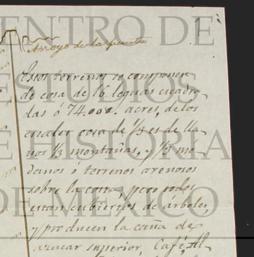 CENTRO DE
Arroyo de la Puente
Estos terrenos se componen
de cosa de 16 leguas cuadra
das ó 74.000. acres, de los
cuales cosa de 1/3 es de lla-
nos 1/3 montañas, y 1/3 me-
danos ó terrenos arenosos
sobre la costa, pero todos
estan cubiertos de árboles,
y producen la caña de
azucar superior, Café, Al-
ESTUDIOS
DE HISTORIA
DE MEXICO